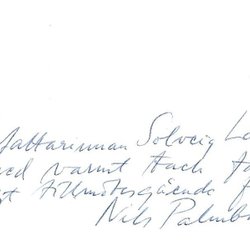 fattarinnan Solveig L
med varmt tack fö
gt tillmötesgående f
Nils Palmb